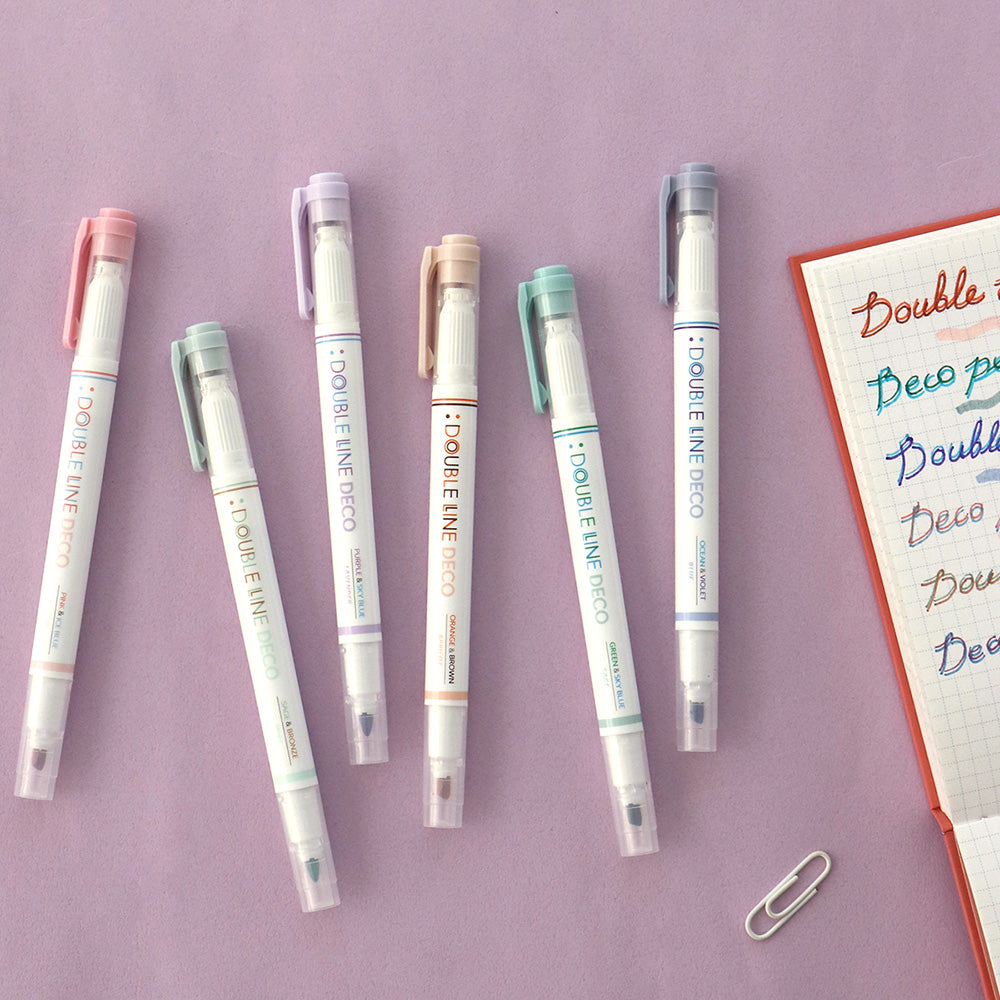 :DOUBLE LINE DECO
PINK & ICE BLUE
:DOUBLE LINE DECO
SAGE & BRONZE
:DOUBLE LINE DECO
PURPLE & SKY BLUE
LAVENDER
:DOUBLE LINE DECO
ORANGE & BROWN
APRICOT
:DOUBLE LINE DECO
GREEN & SKY BLUE
:DOUBLE LINE DECO
OCEAN & VIOLET
BLUE
Double
Deco pe
Double
Deco
Dou
Deco